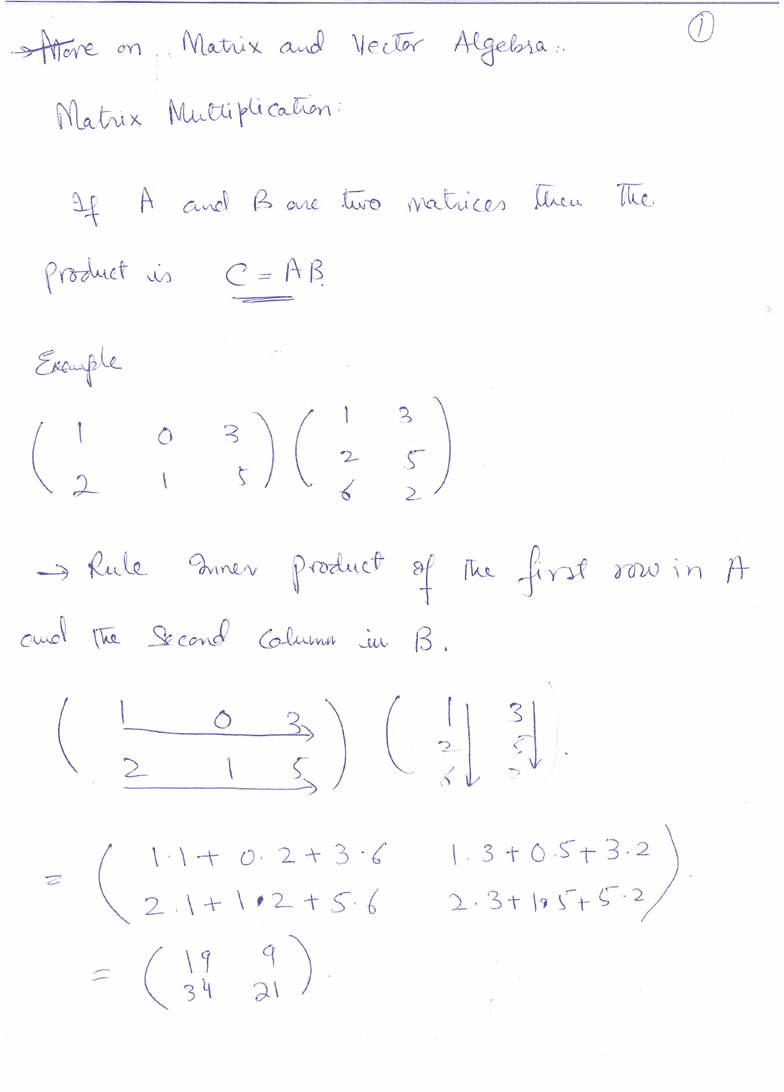 1
→ More on Matrix and Vector Algebra:.
Matrix Multiplication:
If A and B are two matrices then the
product is C = AB.
Example
( 1 0 3 ) ( 1 3 )
( 2 1 5 ) ( 2 5 )
( 6 2 )
→ Rule Inner product of the first row in A
and the Second Column in B.
( 1 0 3 ) ( 1 3
2 1 5 2 5
6 2 .
= ( 1.1 + 0.2 + 3.6 1.3 + 0.5 + 3.2 ) .
2.1 + 1.2 + 5.6 2.3 + 1.5 + 5.2
= ( 19 9 ) .
34 21